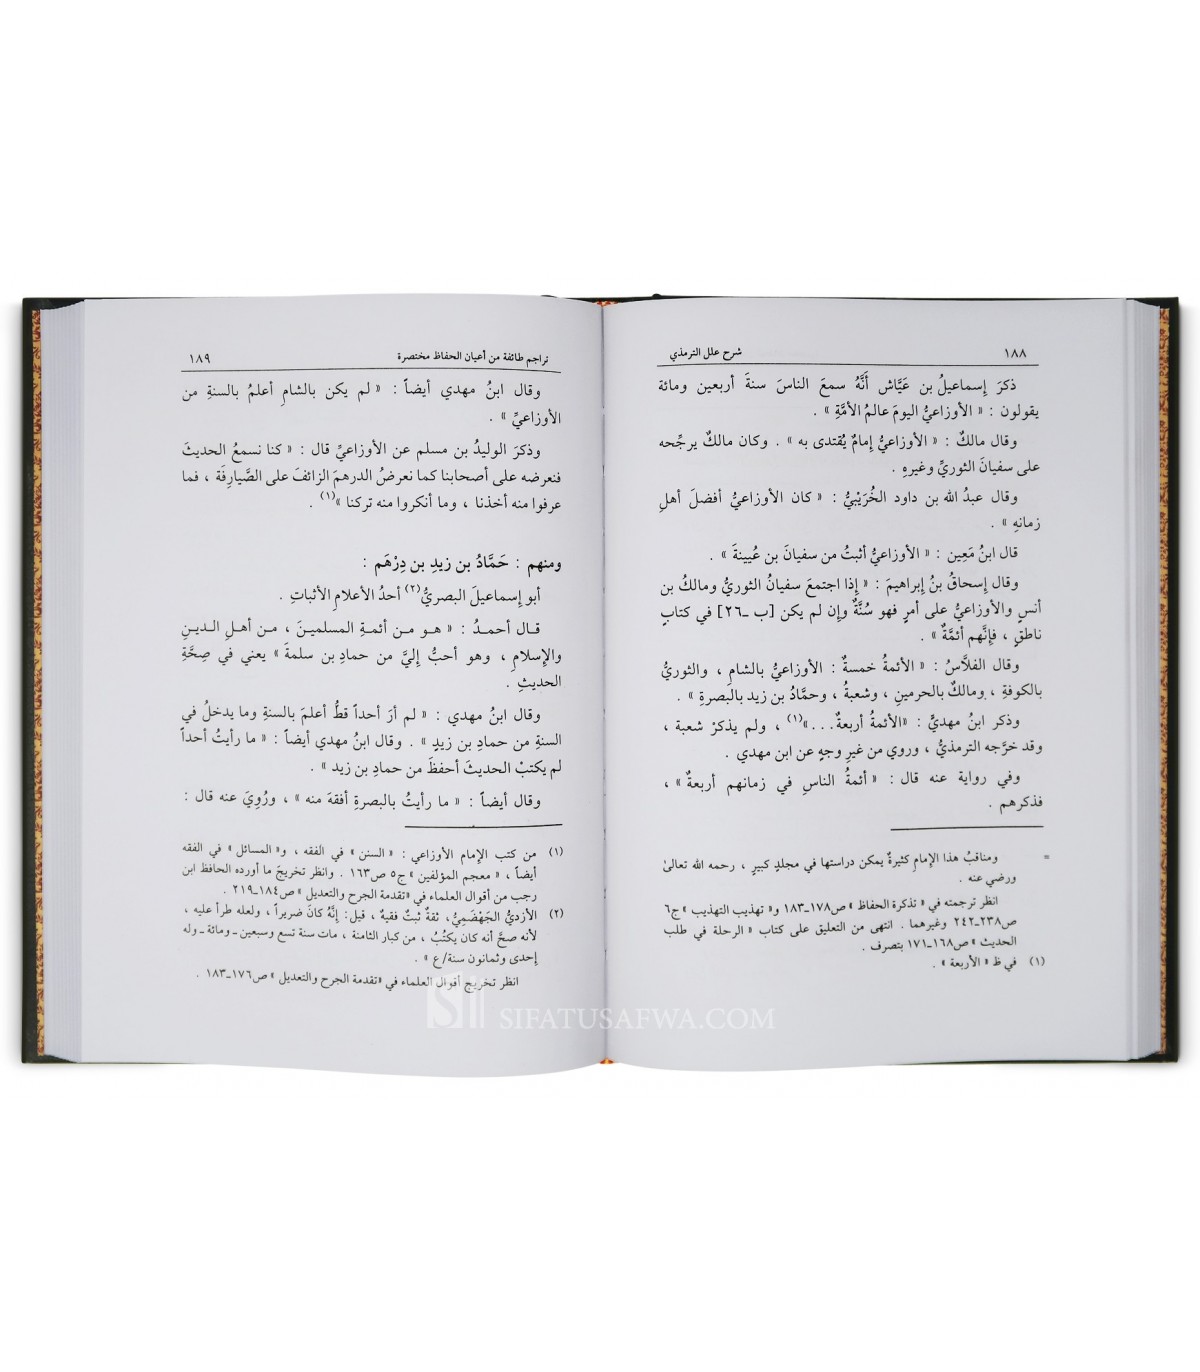 ١٨٨
شرح علل الترمذي
ذكرَ إسماعيلُ بن عَيَّاش أنَّهُ سمعَ الناسَ سنةَ أربعين ومائة
يقولون : « الأوزاعيُّ اليومَ عالمُ الأمَّةِ » .
وقال مالكٌ : « الأوزاعيُّ إمامٌ يُقتدى به » . وكان مالكٌ يرجِّحه
على سفيانَ الثوريِّ وغيرهِ .
وقال عبدُ الله بن داود الخُرَيْبيُّ : « كان الأوزاعيُّ أفضلَ أهلِ
زمانهِ » .
قال ابنُ مَعِين : « الأوزاعيُّ أثبتُ من سفيانَ بن عُيينةَ » .
وقال إسحاقُ بنُ إبراهيمَ : « إذا اجتمعَ سفيانُ الثوريُّ ومالكُ بن
أنسٍ والأوزاعيُّ على أمرٍ فهو سُنَّةٌ وإن لم يكن [ب ـ٢٦] في كتابٍ
ناطقٍ ، فإنَّهم أئمَّةٌ » .
وقال الفلاَّسُ : « الأئمةُ خمسةٌ : الأوزاعيُّ بالشامِ ، والثوريُّ
بالكوفةِ ، ومالكٌ بالحرمينِ ، وشعبةُ ، وحمَّادُ بن زيد بالبصرةِ » .
وذكر ابنُ مهديٍّ : «الأئمةُ أربعةٌ...»(١) ، ولم يذكرْ شعبة ،
وقد خرَّجه الترمذيُّ ، وروي من غيرِ وجهٍ عن ابن مهدي .
وفي رواية عنه قال : « أئمةُ الناسِ في زمانهم أربعةٌ » ،
فذكرهم .
= ومناقبُ هذا الإمامِ كثيرةٌ يمكن دراستها في مجلدٍ كبيرٍ ، رحمه الله تعالىٰ
ورضي عنه .
انظر ترجمته في « تذكرة الحفاظ » ص١٧٨ـ١٨٣ و« تهذيب التهذيب » ج٦
ص٢٣٨ـ٢٤٢ وغيرهما . انتهى من التعليق على كتاب « الرحلة في طلب
الحديث » ص١٦٨ـ١٧١ بتصرف .
(١) في ظ « الأربعة » .
تراجم طائفة من أعيان الحفاظ مختصرة
١٨٩
وقال ابنُ مهدي أيضاً : « لم يكن بالشامِ أعلمُ بالسنةِ من
الأوزاعيِّ » .
وذكرَ الوليدُ بن مسلم عن الأوزاعيِّ قال : « كنا نسمعُ الحديثَ
فنعرضه على أصحابنا كما نعرضُ الدرهمَ الزائفَ على الصَّيارِفَة ، فما
عرفوا منه أخذنا ، وما أنكروا منه تركنا »(١) .
ومنهم : حَمَّادُ بن زيدِ بن دِرْهَم :
أبو إسماعيلَ البصريُّ(٢) أحدُ الأعلامِ الأثباتِ .
قـال أحمـدُ : « هـو مـن أئمـةِ المسلميـنَ ، مـن أهـلِ الـديـنِ
والإسلامِ ، وهو أحبُّ إليَّ من حمادِ بن سلمةَ » يعني في صِحَّةِ
الحديثِ .
وقال ابنُ مهدي : « لم أرَ أحداً قطُّ أعلمَ بالسنةِ وما يدخلُ في
السنة من حمادِ بن زيدٍ » . وقال ابنُ مهدي أيضاً : « ما رأيتُ أحداً
لم يكتبْ الحديثَ أحفظَ من حمادِ بن زيد » .
وقال أيضاً : « ما رأيتُ بالبصرةِ أفقهَ منه » ، ورُوِيَ عنه قال :
(١) من كتب الإمام الأوزاعي : « السنن » في الفقه ، و« المسائل » في الفقه
أيضاً ، « معجم المؤلفين » ج٥ ص١٦٣ . وانظر تخريجَ ما أورده الحافظ ابن
رجب من أقوال العلماء في «تقدمة الجرح والتعديل » ص١٨٤ـ٢١٩ .
(٢) الأزديُّ الجَهْضَمِيُّ، ثقةٌ ثبتٌ فقيهٌ ، قيل: إنَّهُ كانَ ضريراً ، ولعله طرأ عليه ،
لأنه صحَّ أنه كان يكتُبُ ، من كبار الثامنة ، مات سنة تسع وسبعين ـ ومائة ـ وله
إحدى وثمانون سنة/ع » .
انظر تخريج أقوال العلماء في «تقدمة الجرح والتعديل » ص١٧٦ـ١٨٣ .
SIFATUSAFWA.COM